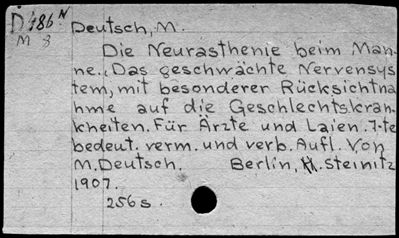 D 186 N Deutsch, M.
M 8
Die Neurasthenie beim Man-
ne. Das geschwächte Nervensys
tem, mit besonderer Rücksichtna
hme auf die Geschlechtskran-
kheiten. Für Ärzte und Laien. 7-te
bedeut. verm. und verb. Aufl. Von
M. Deutsch. Berlin, H. Steinitz
1907.
256 s.